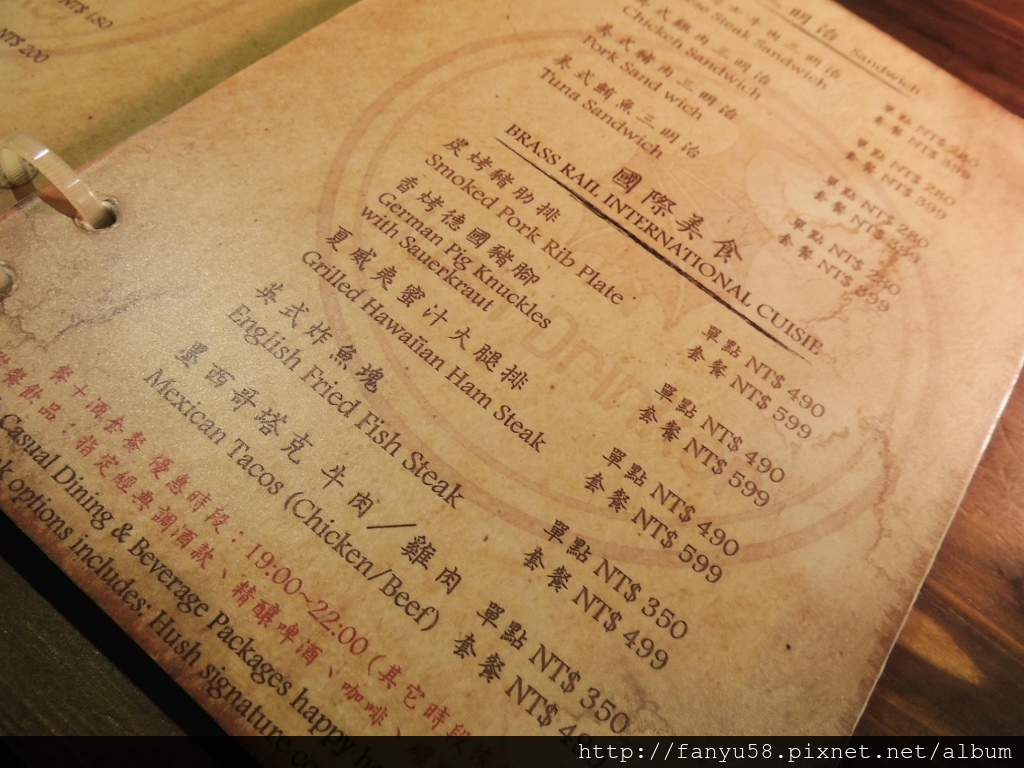 NT$ 180
NT$ 200
三明治 Sandwich
Steak Sandwich
美式雞肉三明治
Chickeh Sandwich
單點 NT$ 280
套餐 NT$ 399
美式豬肉三明治
Pork Sand wich
單點 NT$ 280
套餐 NT$ 399
美式鮪魚三明治
Tuna Sandwich
單點 NT$ 280
套餐 NT$ 399
單點 NT$ 250
套餐 NT$ 399
國際美食
BRASS RAIL INTERNATIONAL CUISIE
炭烤豬肋排
Smoked Pork Rib Plate
單點 NT$ 490
套餐 NT$ 599
香烤德國豬腳
German Pig Knuckles
with Sauerkraut
單點 NT$ 490
套餐 NT$ 599
夏威夷蜜汁火腿排
Grilled Hawaiian Ham Steak
單點 NT$ 490
套餐 NT$ 599
英式炸魚塊
English Fried Fish Steak
單點 NT$ 350
套餐 NT$ 499
墨西哥塔克 牛肉／雞肉
Mexican Tacos (Chicken/Beef)
單點 NT$ 350
套餐 NT$
餐+酒套餐 優惠時段：19:00~22:00 (其它時段
餐飲品：指定經典調酒款、精釀啤酒、咖啡、
Casual Dining & Beverage Packages happy
options includes: Hush signature
http://fanyu58.pixnet.net/album